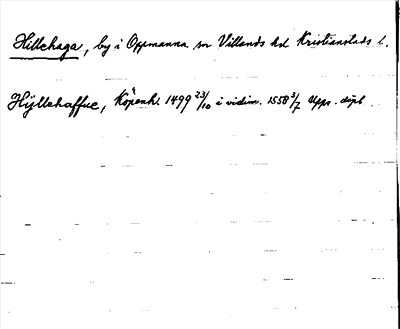 Hillehaga, by i Oppmanna sn Villands hd Kristianstads l.
Hÿllehaffue, Köpenh. 1499 23/10 i vidim. 1558 3/7 Upps. dipl.